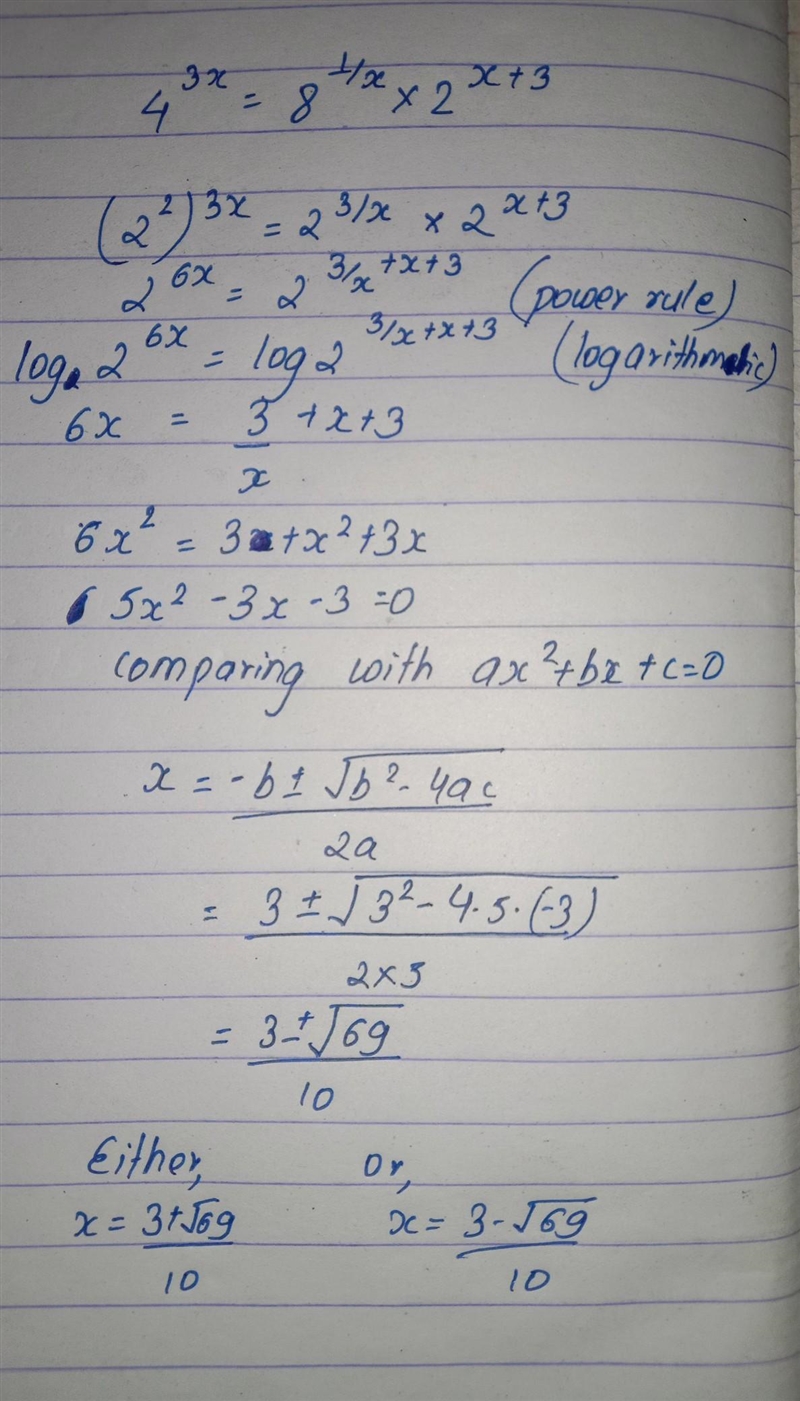 4^3x = 8^1/x × 2^x+3
(2^2)^3x = 2^3/x × 2^x+3
2^6x = 2^3/x+x+3 (power rule)
log 2^6x = log 2^3/x+x+3 (logarithmetic)
6x = 3/x + x + 3
6x² = 3 + x² + 3x
5x² - 3x - 3 = 0
comparing with ax² + bx + c = 0
x = -b ± √b² - 4ac
2a
= 3 ± √3² - 4·5·(-3)
2×5
= 3 ± √69
10
Either, Or,
x = 3+√69 x = 3-√69
10 10